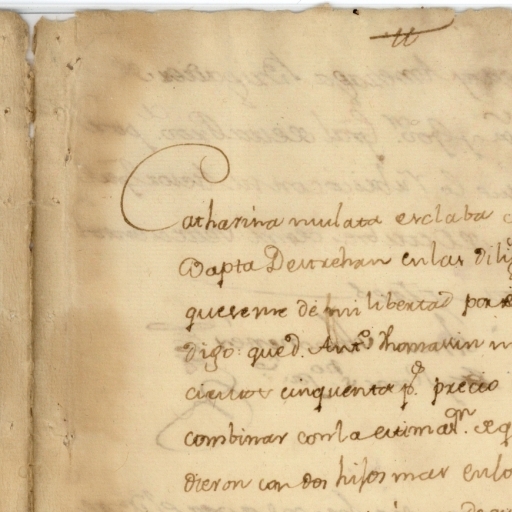 Catharina mulata esclaba
Bapta Destrehan en las dili
que se me dé mi libertad por e
digo: que dn. Anto. Thomasin m
cientos cinquenta ps. precio
combinar con la estimaon. e q
dieron con dos hijos mas en lo